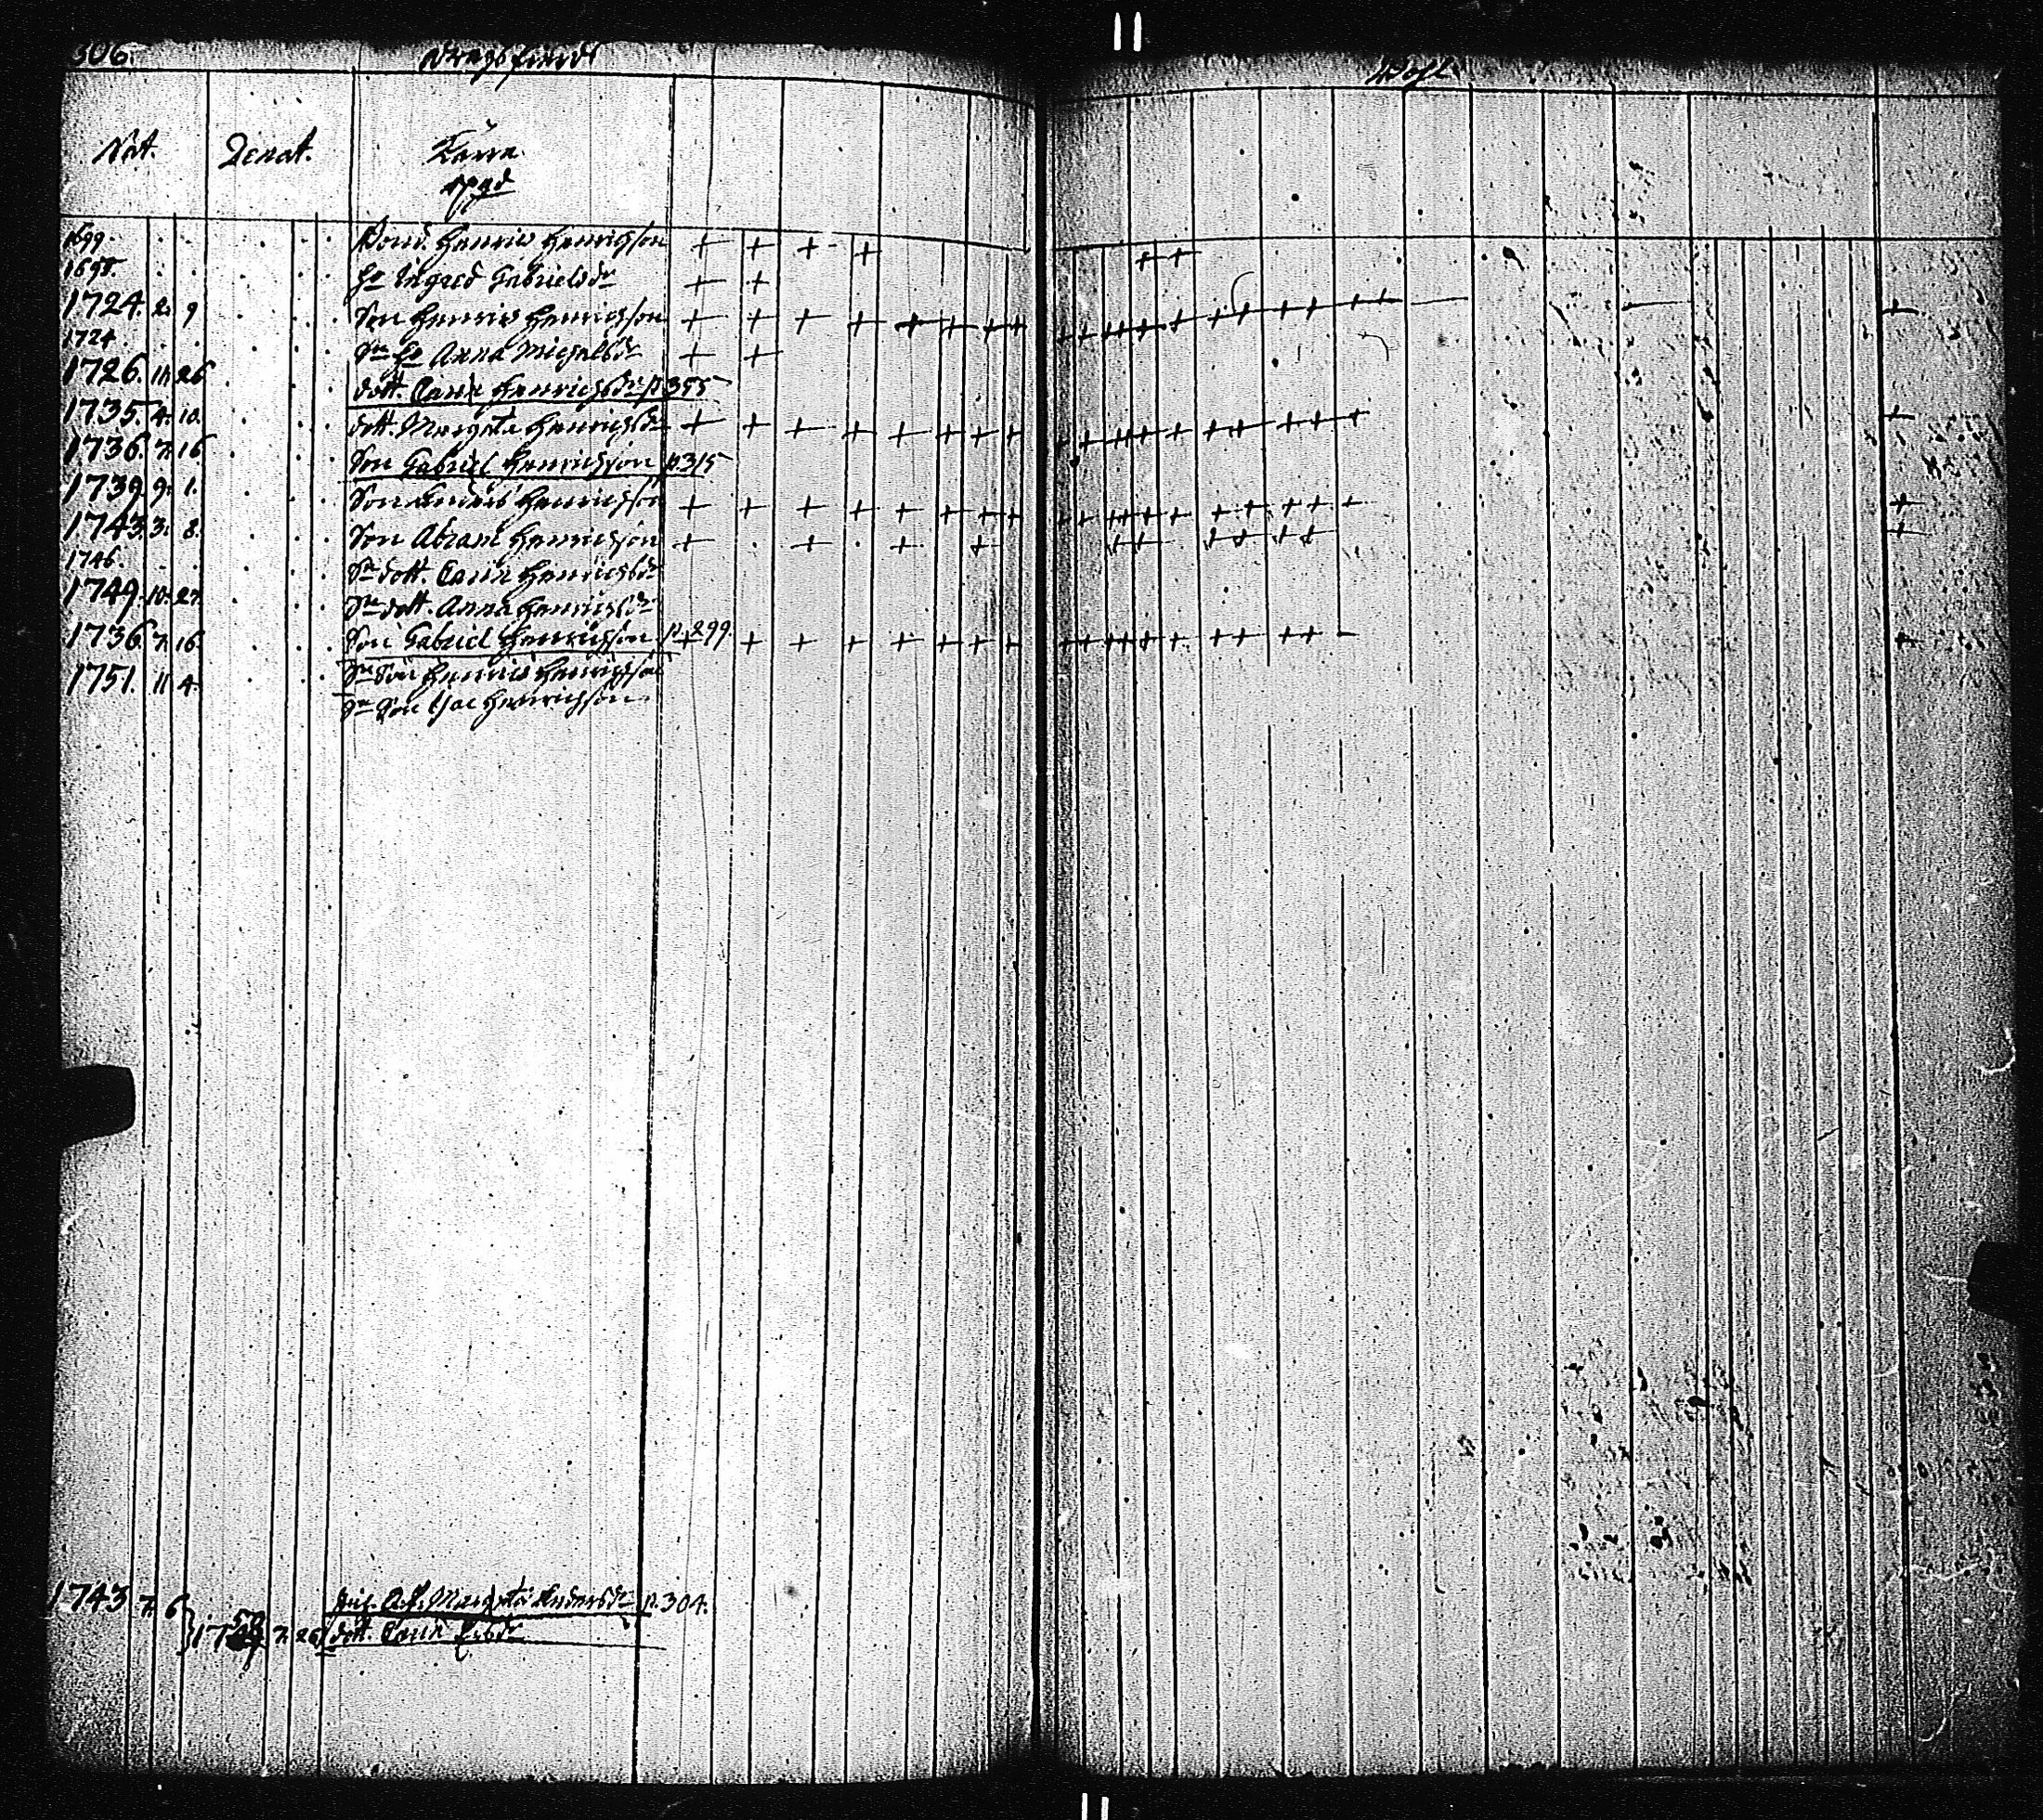 306. Dragsfierd
Nat. Denat. Kärra
1699. Bond. Henric Henrichson + + + + + +
1695. H. Ingred Gabrielsdr + +
1724. 2. 9 Son Henric Henrichson + + + + + + + + + + + + + + + + + + + + +
1724 Sn H Anna Michelsdr + +
1726. 11. 26 dott. Carin Henrichsdr p. 355
1735. 4. 10. dott. Margeta Henrichsdr + + + + + + + + + + + + + + + + + + +
1736. 7. 16. Son Gabriel Henrichson p. 315
1739. 9. 1. Son Anders Henrichson + + + + + + + + + + + + + + + + + + +
1743. 3. 8. Son Abram Henrichson + + + + + + + + + + +
1746. Sn dott. Carin Henrichsdr
1749. 10. 27. Sn dott. Anna Henrichsdr
1736. 7. 16. Son Gabriel Henrichson p. 299. + + + + + + + + + + + + + + + + +
1751. 11. 4. Sn Son Henric Henrichson
Sn Son Isac Henrichson
1743 7. 6 Margeta Andersdr p. 304.
7. 26 dott. Carin